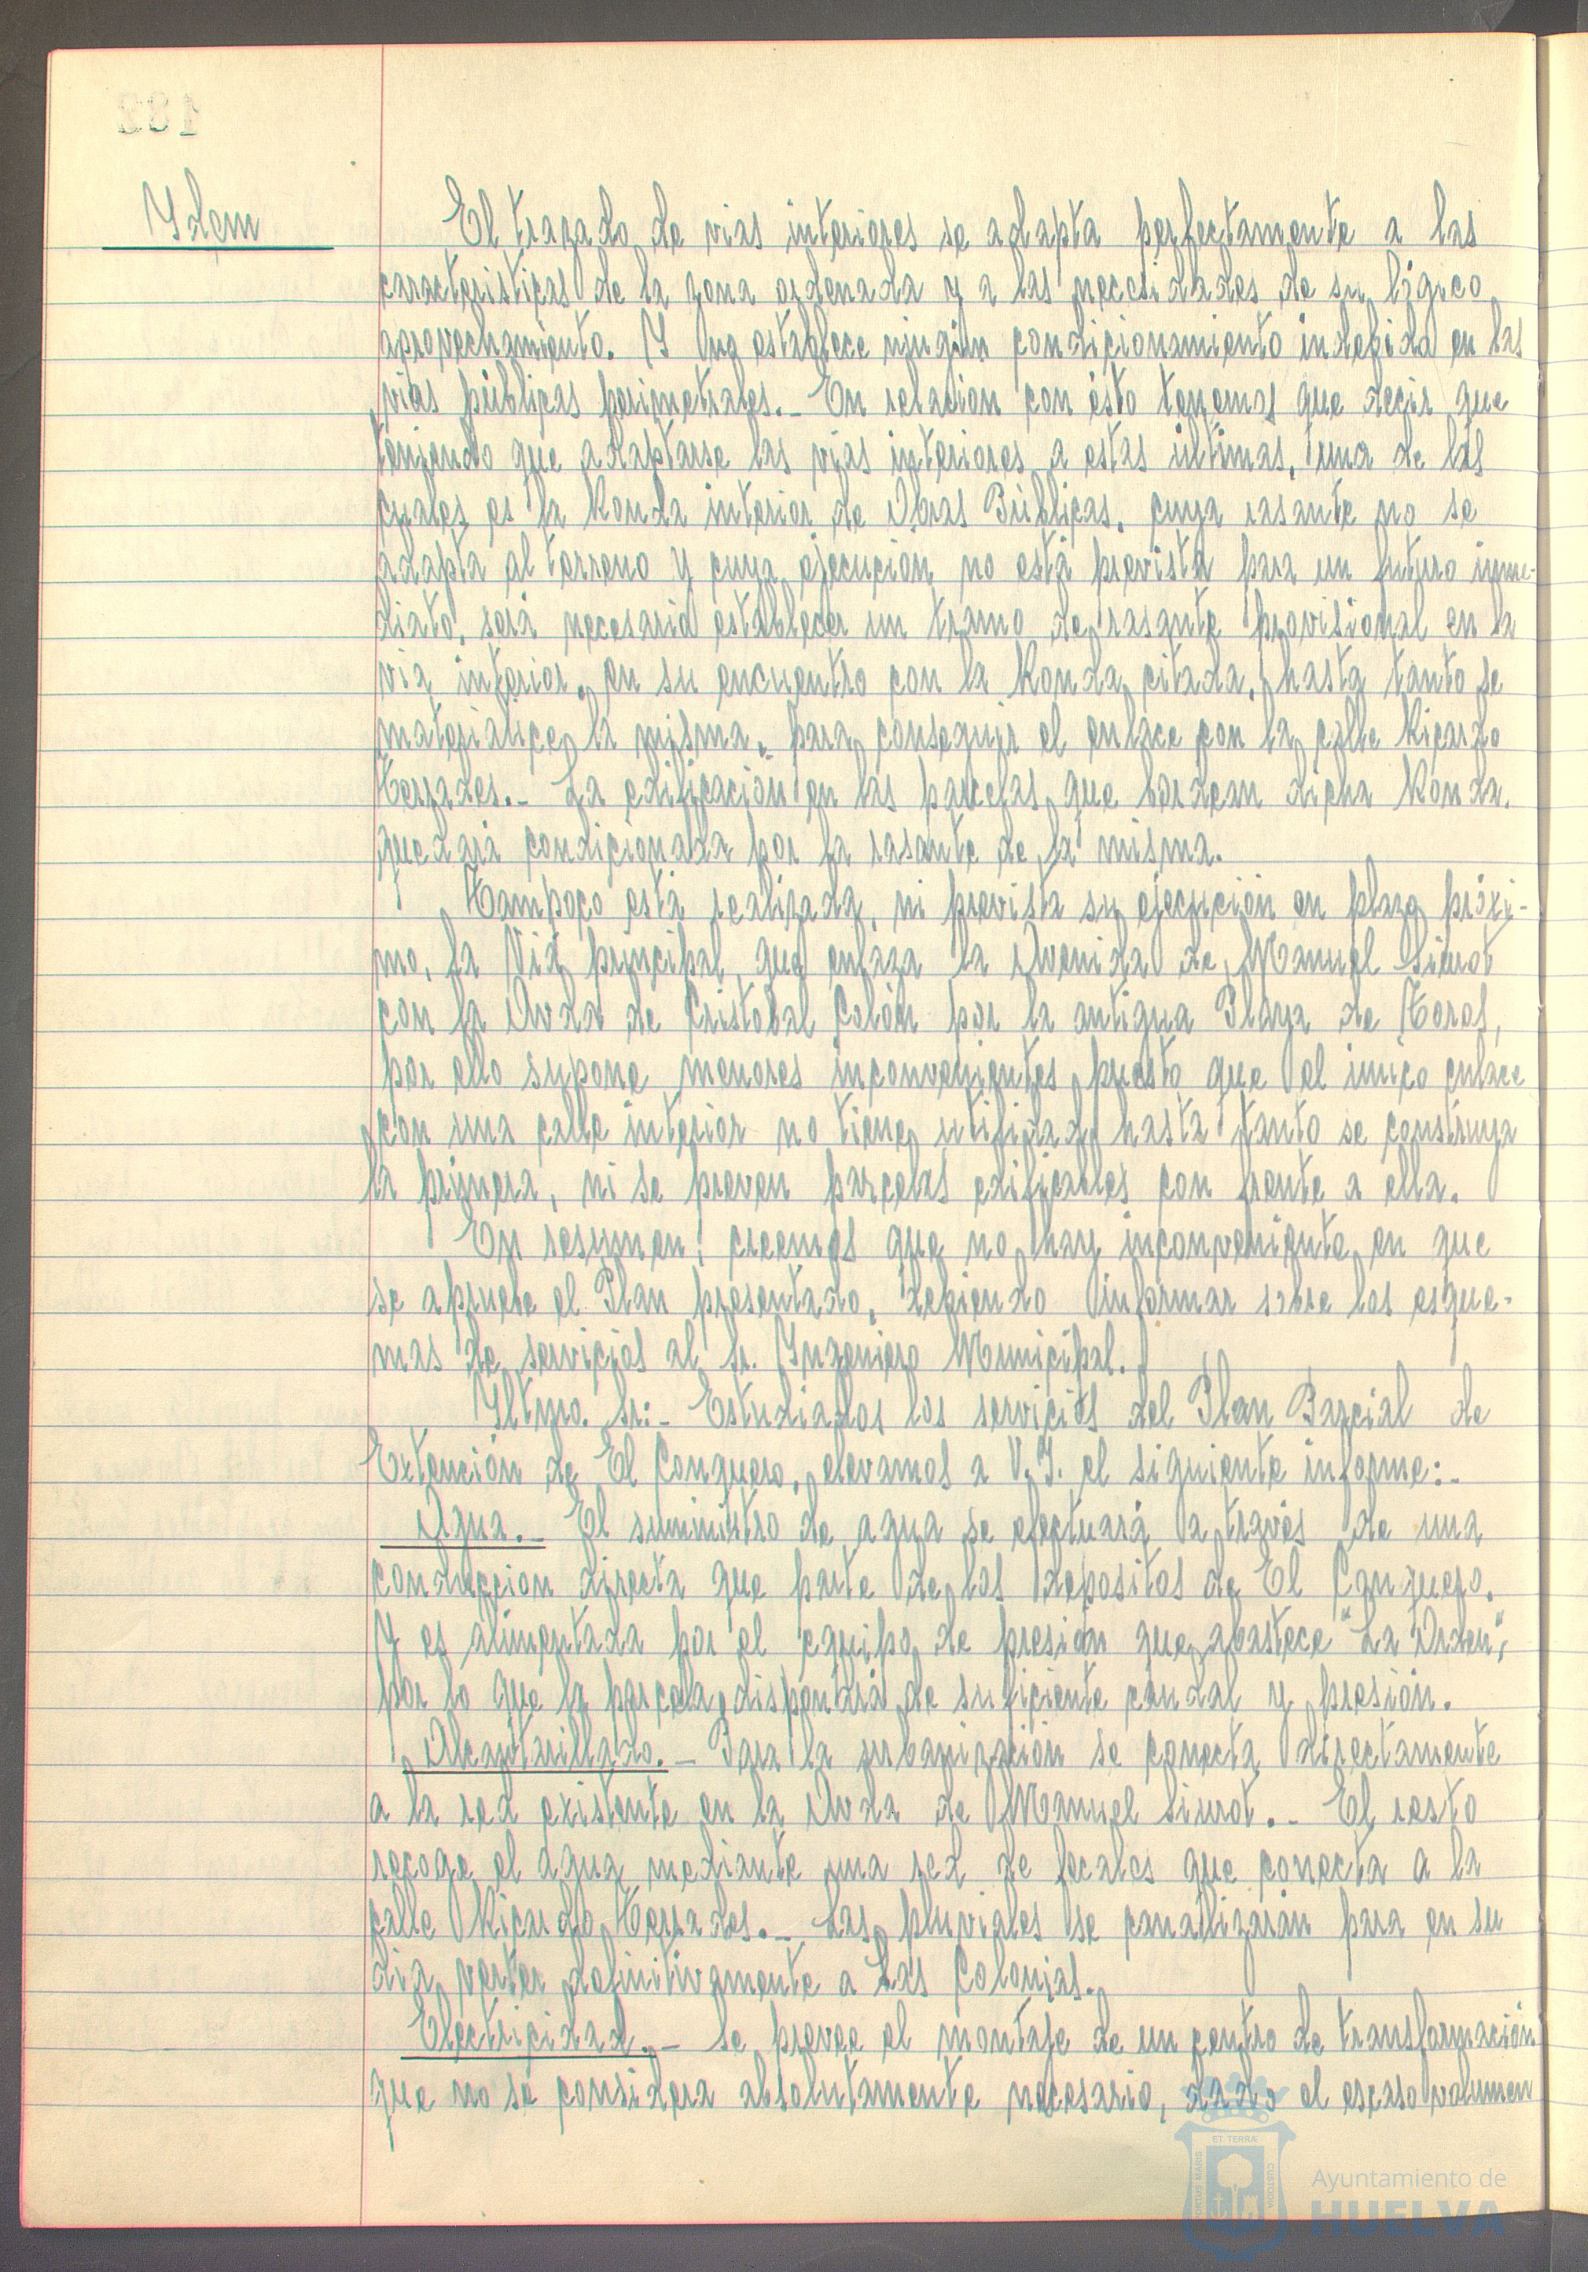 Ydem
El trazado de vias interiores se adapta perfectamente a las
caracteristicas de la zona ordenada y a las necesidades de su lógico
aprovechamiento. Y no establece ningún condicionamiento indebido en las
vias públicas perimetrales.- En relacion con ésto tenemos que decir que
teniendo que adaptarse las vias interiores a estas últimas, una de las
cuales es la Ronda interior de Obras Públicas, cuya rasante no se
adapta al terreno y cuya ejecución no está prevista para un futuro inme-
diato, será necesario establecer un tramo de rasante provisional en la
via interior, en su encuentro con la Ronda citada, hasta tanto se
materialice la misma, para conseguir el enlace con la calle Ricardo
Terrades.- La edificación en las parcelas que bordean dicha Ronda,
quedará condicionada por la rasante de la misma.
Tampoco está realizada, ni prevista su ejecución en plazo próxi-
mo, la Via principal que enlaza la Avenida de Manuel Siurot
con la Avda de Cristobal Colón por la antigua Plaza de Toros,
por ello supone menores inconvenientes puesto que el único enlace
con una calle interior no tiene utilidad hasta tanto se construya
la primera, ni se preven parcelas edificables con frente a ella.
En resumen, creemos que no hay inconveniente en que
se apruebe el Plan presentado, debiendo informar sobre los esque-
mas de servicios al Sr. Ingeniero Municipal.
Iltmo. Sr:- Estudiados los servicios del Plan Parcial de
Extención de El Conquero, elevamos a V.I. el siguiente informe:-
Agua.- El suministro de agua se efectuará a través de una
conduccion directa que parte de los depositos de El Conquero,
Y es alimentada por el equipo de presión que abastece "La Orden",
por lo que la parcela dispondrá de suficiente caudal y presión.
Alcantarillado.- Para la urbanización se conecta directamente
a la red existente en la Avda de Manuel Siurot.- El resto
recoge el agua mediante una red de fecales que conecta a la
calle Ricardo Terrades.- Las pluviales se canalizarán para en su
dia verter definitivamente a Las Colonias.
Electricidad.- Se prevee el montaje de un centro de transformación
que no se considera absolutamente necesario, dado el escaso volumen
ET TERRÆ
Ayuntamiento de
HUELVA